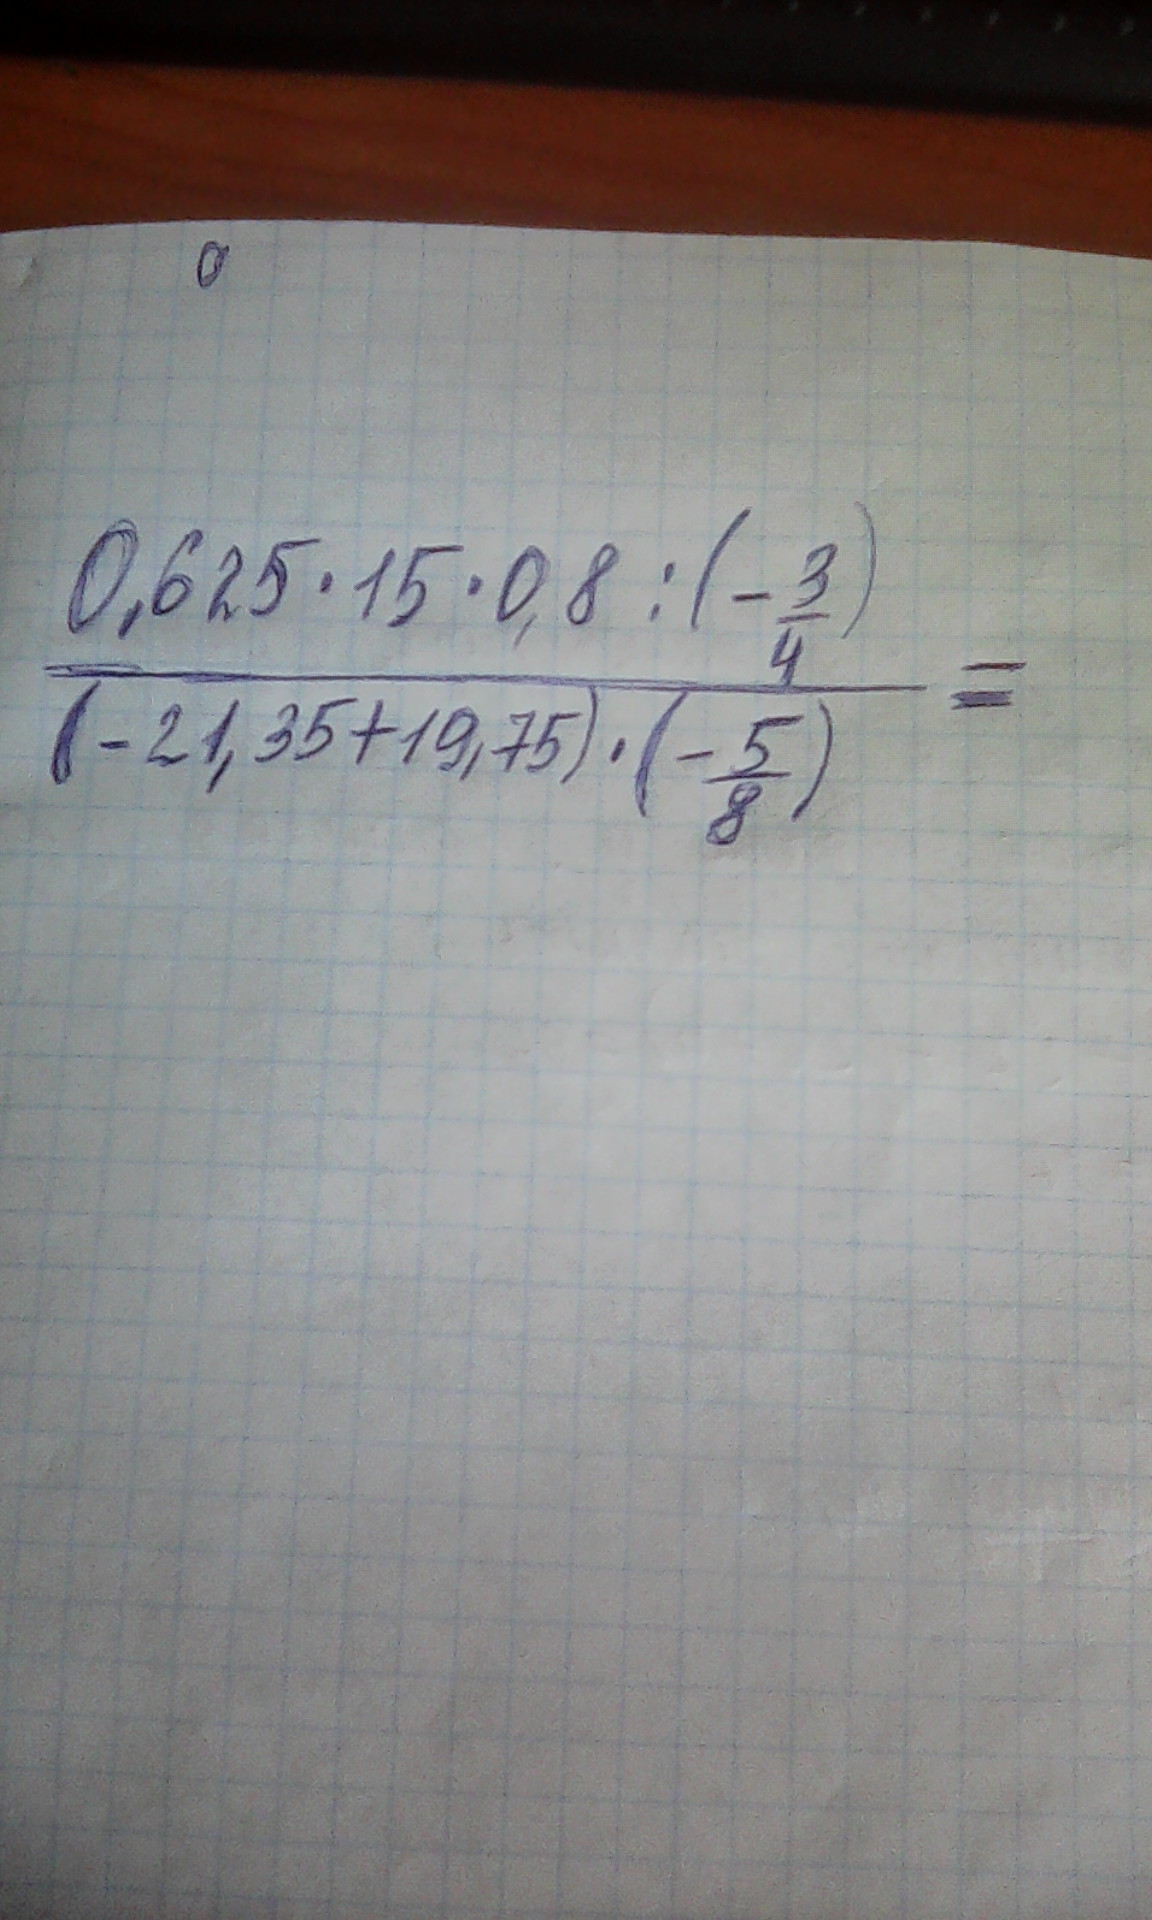 0
0,625·15·0,8:(-3/4)
(-21,35+19,75)·(-5/8) =